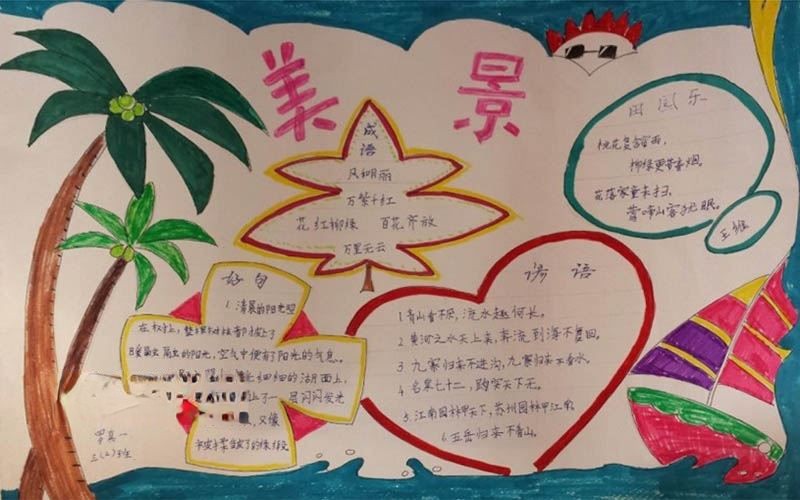 美景
成语
风和日丽
万紫千红
花红柳绿 百花齐放
万里无云
田园乐
桃花复含宿雨,
柳绿更带春烟。
花落家童未扫,
莺啼山客犹眠。
王维
好句
1.清晨的阳光照
在树上,整棵树好
暖融融的阳光,空气中便有了阳光的气息。
细细的湖面上,
上了一层闪闪发光
,又像
谚语
1青山看不厌,流水趣何长。
2黄河之水天上来,奔流到海不复回。
3九寨归来不进沟,九寨归来不看水。
4名泉七十二,趵突天下无。
5、江南园林甲天下,苏州园林甲江南。
6.五岳归来不看山。
罗真一
三(2)班